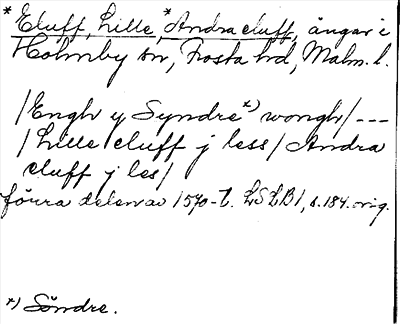 * Cluff, Lille, * Andra cluff, ängar i
Holmby sn, Frosta hd, Malm. l.
/Engh y Syndre x) wongh/ ---
/Lille cluff j less/ Andra
cluff j les/
förra delen av 1570-t. LSLB1, s. 184. orig.
x) Söndre.